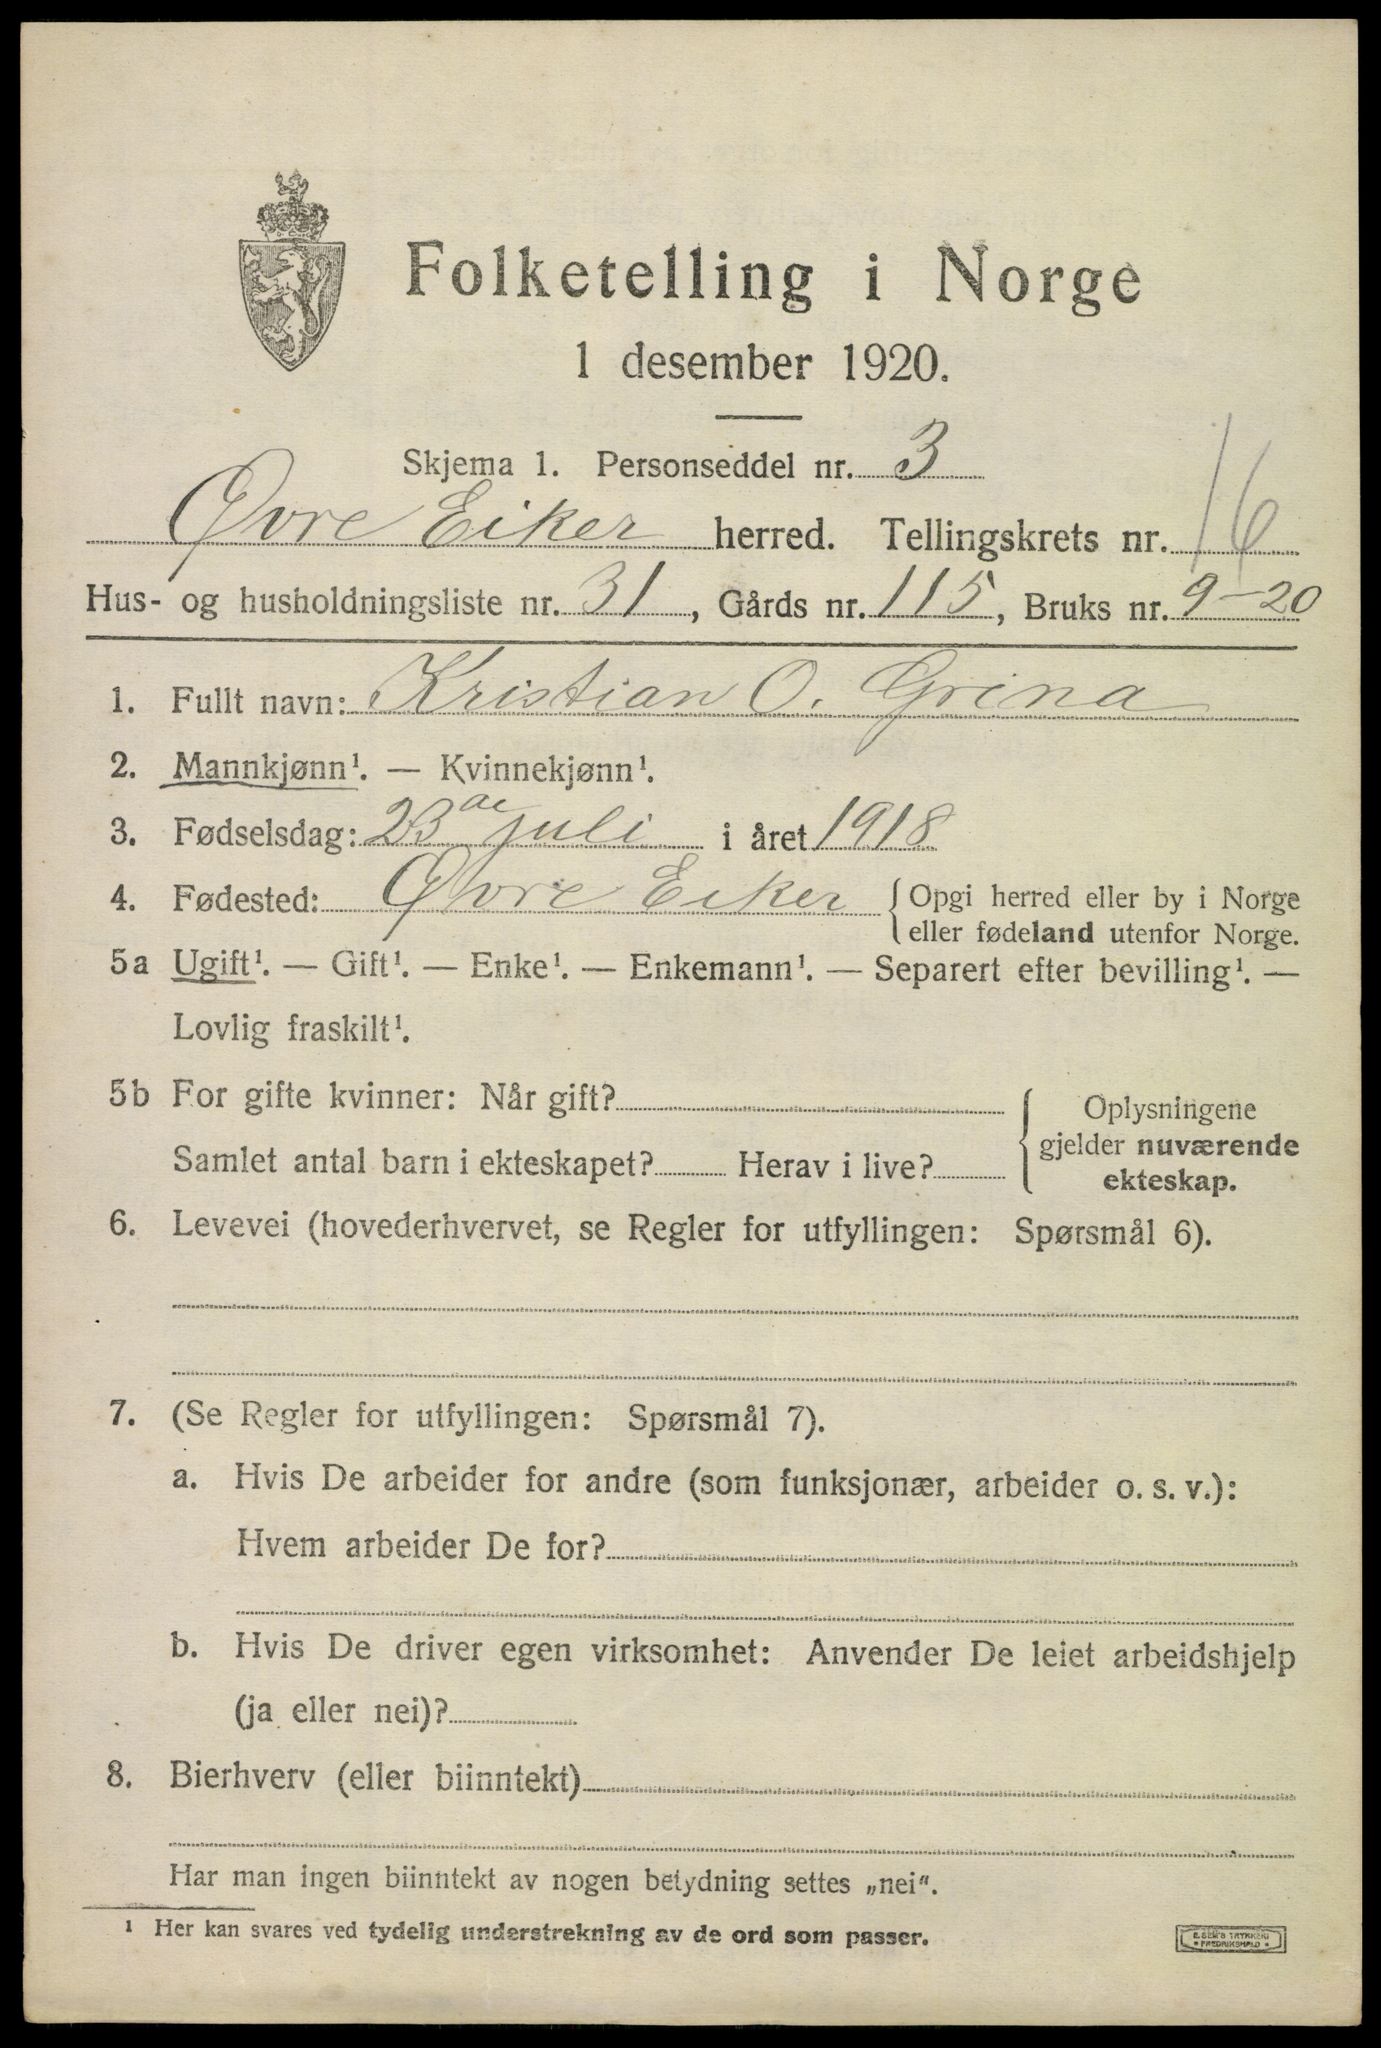 Folketelling i Norge
1 desember 1920.
Skjema 1. Personseddel nr. 3
Øvre Eiker herred. Tellingskrets nr. 16
Hus- og husholdningsliste nr. 31, Gårds nr. 115, Bruks nr. 9-20
1. Fullt navn: Kristian O. Grina
2. Mannkjønn¹. — Kvinnekjønn¹.
3. Fødselsdag: 23de juli i året 1918
4. Fødested: Øvre Eiker { Opgi herred eller by i Norge
eller fødeland utenfor Norge.
5a Ugift¹. — Gift¹. — Enke¹. — Enkemann¹. — Separert efter bevilling¹. —
Lovlig fraskilt¹.
5b For gifte kvinner: Når gift?
Samlet antal barn i ekteskapet? Herav i live?
Oplysningene
gjelder nuværende
ekteskap.
6. Levevei (hovederhvervet, se Regler for utfyllingen: Spørsmål 6).
7. (Se Regler for utfyllingen: Spørsmål 7).
a. Hvis De arbeider for andre (som funksjonær, arbeider o. s. v.):
Hvem arbeider De for?
b. Hvis De driver egen virksomhet: Anvender De leiet arbeidshjelp
(ja eller nei)?
8. Bierhverv (eller biinntekt)
Har man ingen biinntekt av nogen betydning settes „nei".
¹ Her kan svares ved tydelig understrekning av de ord som passer.
E. SEM'S TRYKKERI
FREDRIKSHALD